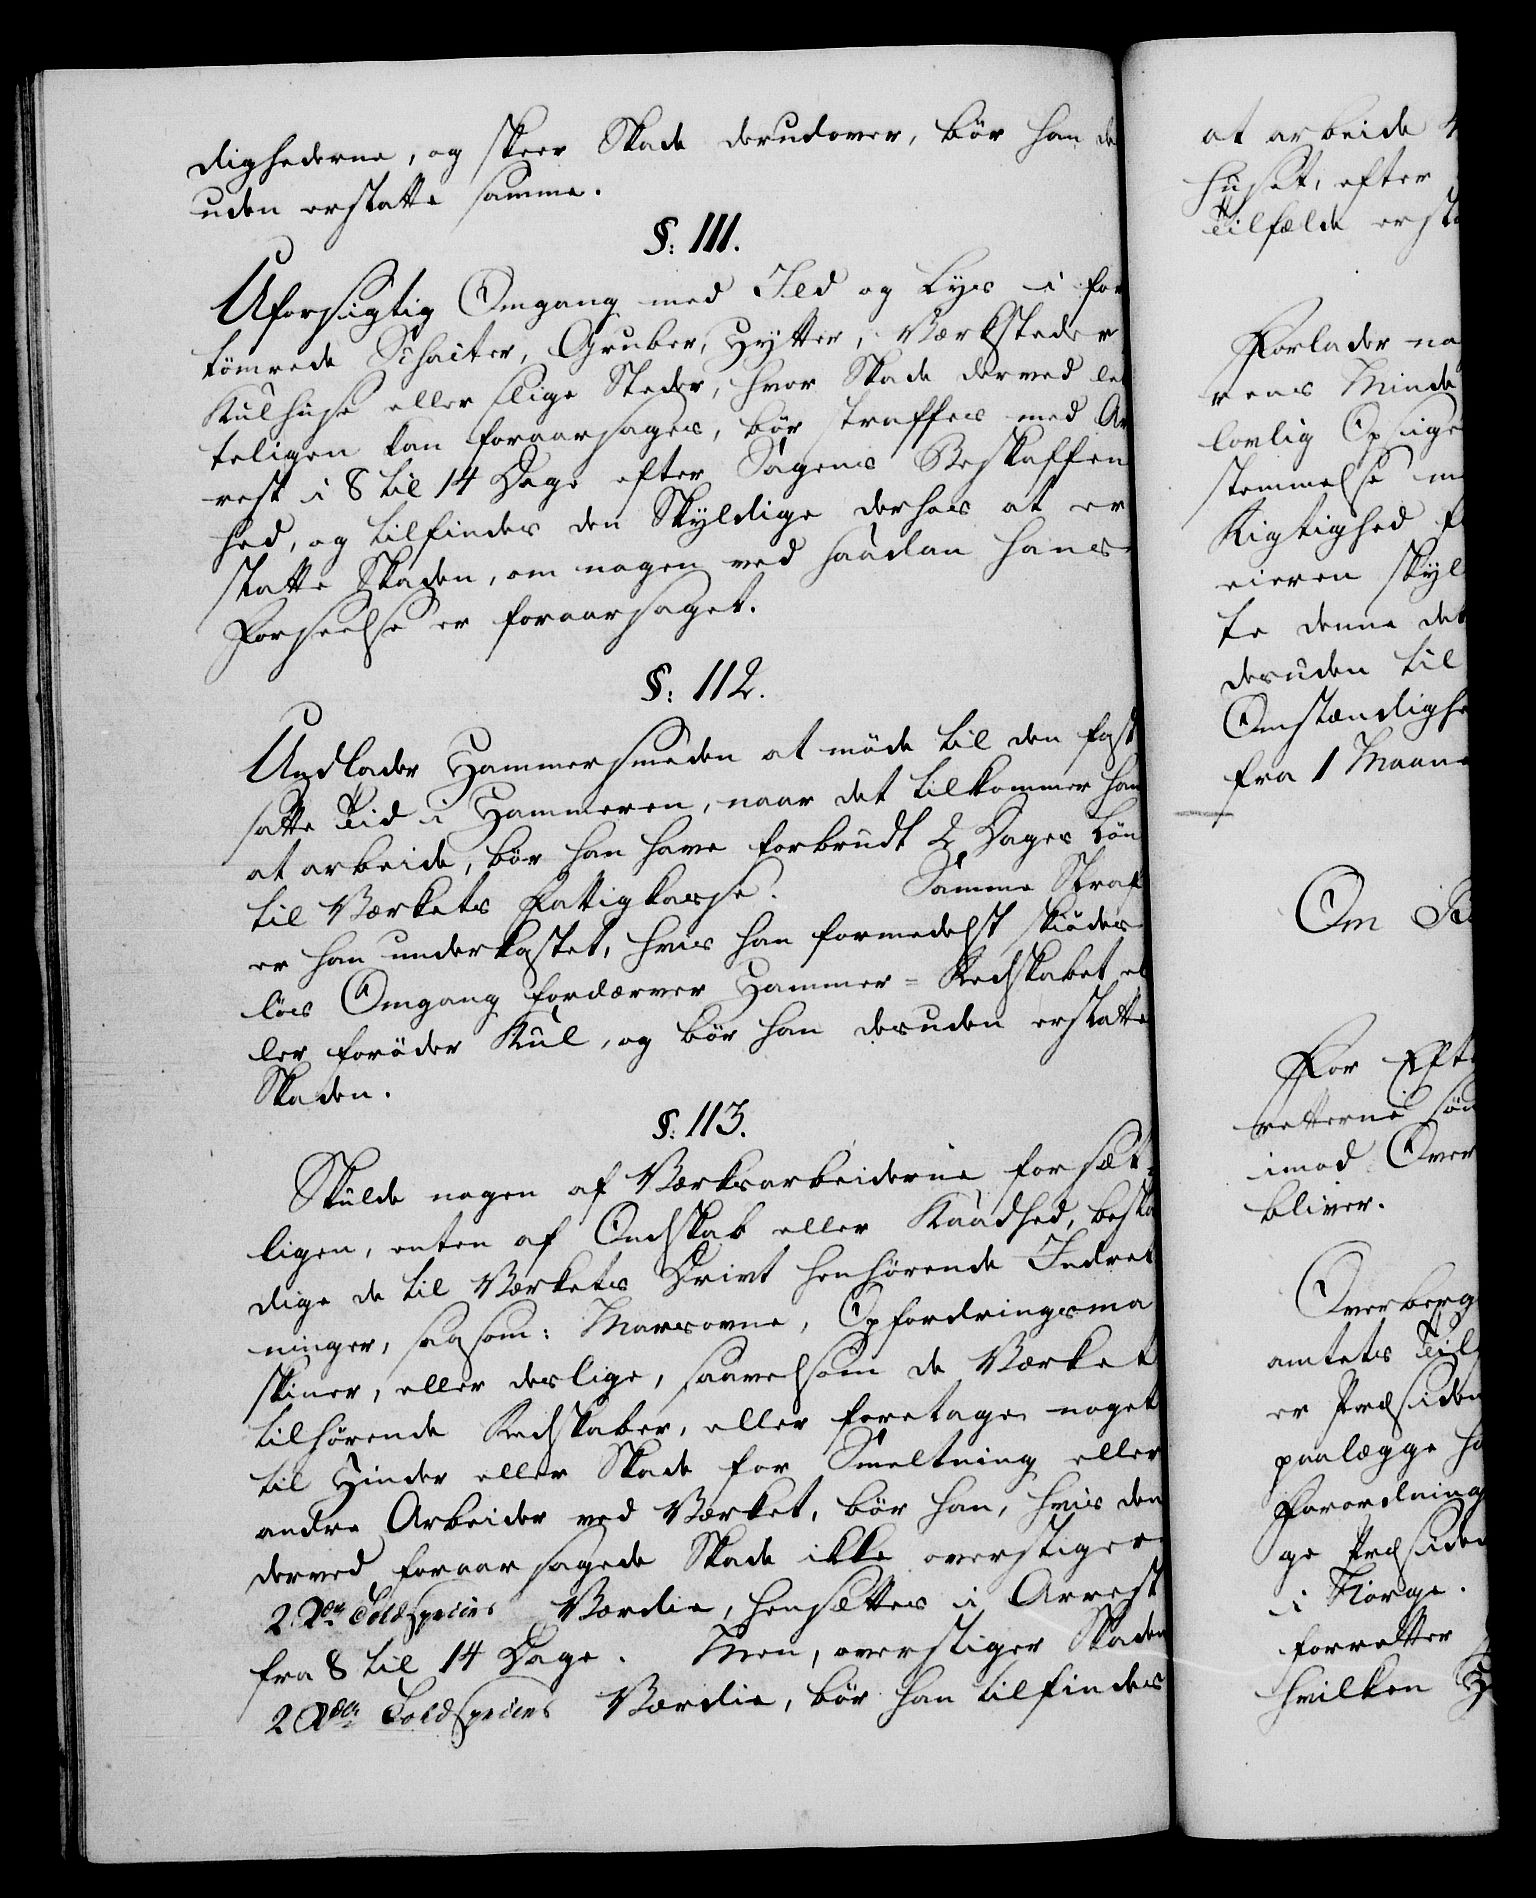 dighederne, og skeer Skade derudover, bör han de
uden erstatte samme.
§: 111.
Uforsigtig Omgang med Ild og Lys i for
tömrede Schaiter, Gruber, Hytter, Værksteder
Kulhuse eller slige Steder, hvor Skade derved let
teligen kan foraarsages, bör straffes med Ar
rest i 8 til 14 Dage efter Sagens Beskaffen
hed, og tilfindes den Skyldige derhos at er
statte Skaden, om nogen ved saadan hans
Forseelse er foraarsaget.
§: 112.
Undlader Hammersmeden at möde til den fast
satte Tid i Hammeren, naar det tilkommer ham
at arbeide, bör han have forbrudt 2 Dages Lön
til Værkets Fattigkasse. Samme Straf
er han underkastet, hvis han formedelst skiödes
lös Omgang fordærver Hammer=Redskabet el
ler foröder Kul, og bör han desuden erstatte
Skaden.
§: 113.
Skulde nogen af Værksarbeiderne forsæt=
ligen, enten af Ondskab eller Kaadhed, beska
dige de til Værkets Drivt henhörende Indret
ninger, saasom: Marsovne, Opfordringsma
skiner, eller deslige, saavelsom de Værket
tilhörende Redskaber, eller foretage noget
til Hinder eller Skade for Smeltning eller
andre Arbeider ved Værket, bör han, hvis den
derved foraarsagede Skade ikke overstiger
2 Rdlr Sölvspecies Værdie, hensættes i Arrest
fra 8 til 14 Dage. Men, overstiger Skaden
2 Rdlr Sölvspecies Værdie, bör han tilfindes
at arbeide
huset, efter
Tilfælde ersta
Forlader no
rens Minde
lovlig Opsige
stemmelse
Rigtighed
eieren skyl
te denne det
desuden til
Omstændighe
fra 1 Maane
Om
For Eft
retterne sön
imod Over
bliver.
Overberg
amtets Til
er Præsiden
paalægge
Forordning
ge Præsiden
i Norge.
forretter
hvilken